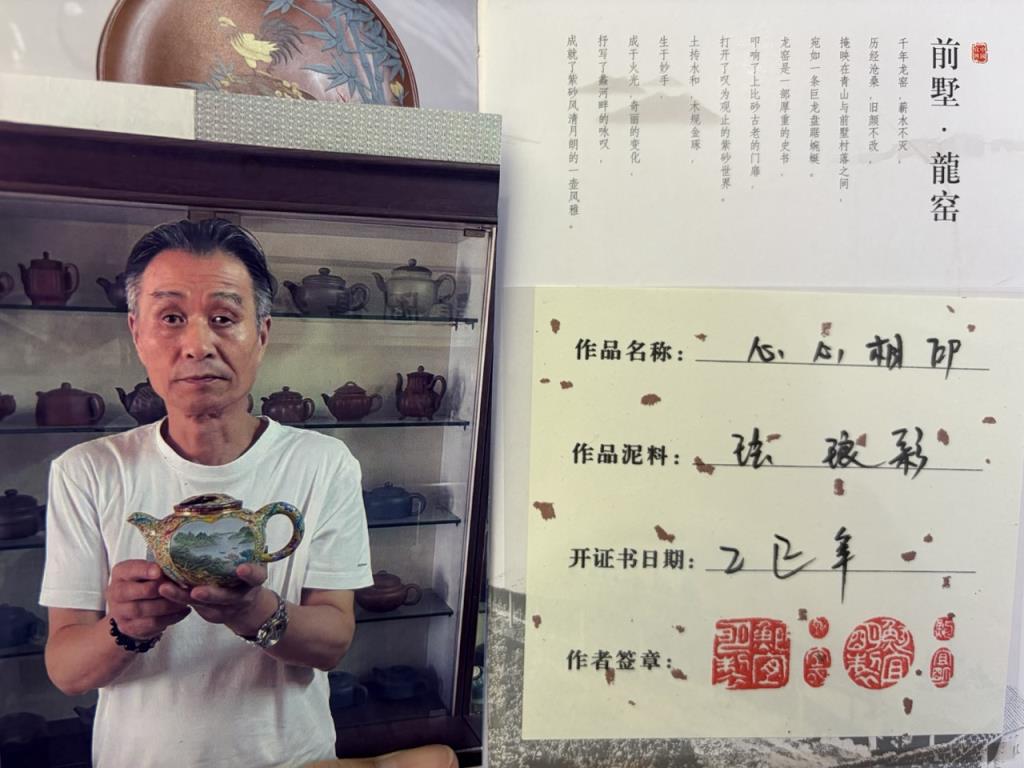 前墅·龍窑
千年龙窑，薪水不灭
历经沧桑，旧颜不改，
掩映在青山与前墅村落之间，
宛如一条巨龙盘踞蜿蜒。
龙窑是一部厚重的史书，
叩响了上比砂古老的门扉，
打开了叹为观止的紫砂世界。
土抟水和，木规金琢，
生于妙手，
成于火光，奇丽的变化，
抒写了蠡河畔的咏叹，
成就了紫砂风清月朗的一壶风雅。
作品名称：心心相印
作品泥料：珐琅彩
开证书日期：乙巳年
作者签章：